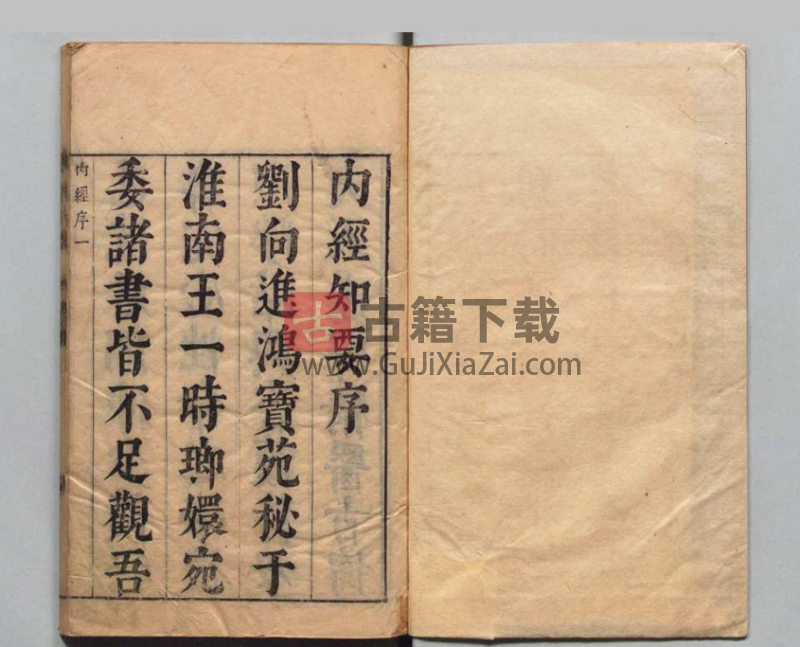 内經知要序
劉向進鴻寶苑秘于
淮南王一時瑯嬛宛
委諸書皆不足觀吾
内經序一
古 古籍下载
www.GuJiXiaZai.com